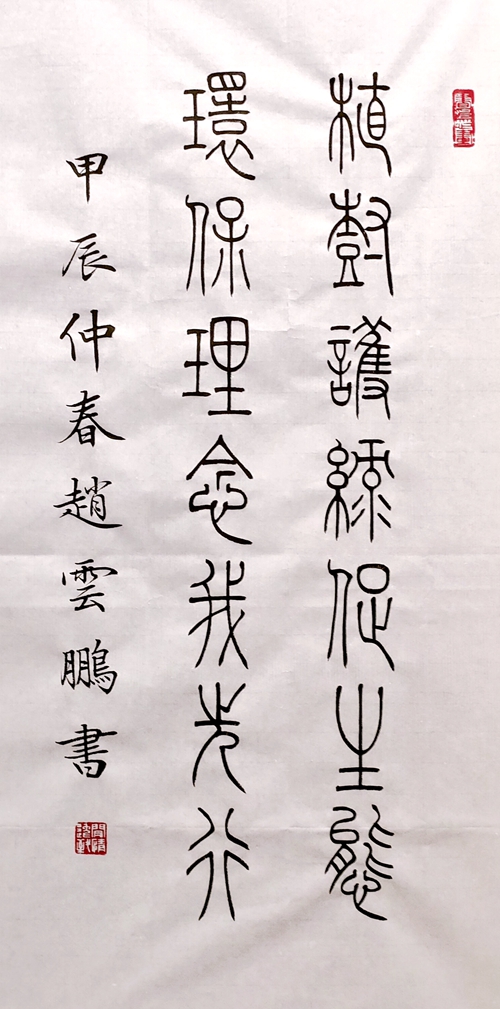 植樹護綠促生態
環保理念我先行
甲辰仲春趙雲鵬書